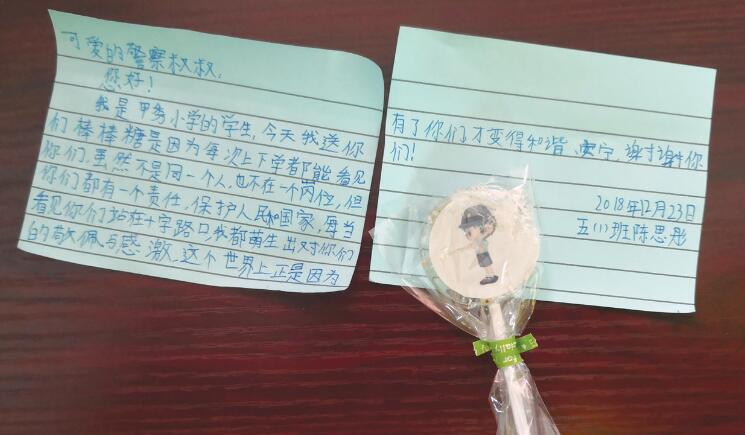 可爱的警察叔叔，
您好！
我是甲秀小学的学生，今天我送你
们棒棒糖是因为每次上下学都能看见
你们，虽然不是同一个人，也不在一个岗位，但
你们都有一个责任，保护人民和国家，每当
看见你们站在十字路口我都萌生出对你们
的敬佩与感激，这个世界上正是因为
有了你们才变得和谐、安宁，谢谢你
们！
2018年12月23日
五(1)班陈思彤
for